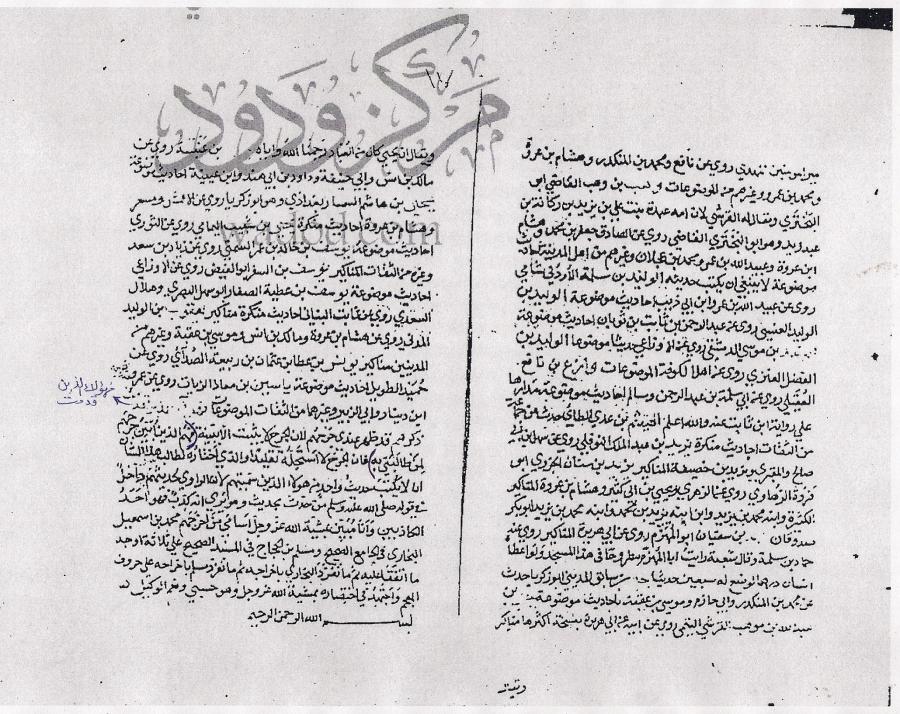 مركز ودود
wadod.com
١٧
عن نافع ومحمد بن المنكدر وهشام بن عروة
ومحمد بن عمرو وغيرهم من الموضوعات وهب بن وهب القاضي ابو
البختري ويقال له القرشي لان امه عبدة بنت علي بن يزيد بن ركانة بن
عبد يزيد وهو ابو البختري القاضي روى عن الصادق جعفر بن محمد وهشام
ابن عروة وعبيد الله بن عمر ومحمد بن عجلان وغيرهم من اهل المدينة احاديث
موضوعة لا ينبغي ان يكتب حديثه الوليد بن سلمة الأردني شامي
روى عن عبيد الله بن عمر وابن ابي ذئب احاديث موضوعة الوليد بن
الوليد العنسي روى عن عبد الرحمن بن ثابت بن ثوبان احاديث موضوعة
بن موسى الدمشقي روى عن الاوزاعي حديثا موضوعا الوليد بن
الفضل العنزي روى عن اهل الكوفة الموضوعات وازع بن نافع
العقيلي روى عن ابي سلمة بن عبد الرحمن وسالم احاديث موضوعة
على رواية ابن ثابت عنه والله اعلم الهيثم بن عدي الطائي حدث عن جماعة
من الثقات احاديث منكرة يزيد بن عبد الملك النوفلي روى عن سهيل بن ابي
صالح والمقبري ويزيد بن خصيفة المناكير يزيد بن سنان الجزري ابو
فروة الرهاوي روى عن الزهري ويحيى بن ابي كثير وهشام بن عروة المناكير
الكثيرة وابنه محمد بن يزيد وابن ابنه يزيد بن محمد وابنه محمد بن يزيد ابو بكر
بن سفيان ابو المهزم روى عن ابي هريرة المناكير روى عنه
حماد بن سلمة وقال شعبة رايت ابا المهزم مطروحا في هذا المسجد ولو اعطاه
انسان درهما لوضع له سبعين حديثا بن سابق المديني ابو زكريا حدث
عن محمد بن المنكدر وابي حازم وموسى بن عقبة باحاديث موضوعة بن
عبد الله بن موهب القرشي التيمي روى عن ابيه عن ابي هريرة بنسخة اكثرها مناكير
ويقال ان يحيى كان من العباد رحمنا الله واياه بن عنبسة روى عن
مالك بن انس وابي حنيفة وداود بن ابي هند وابن عيينة احاديث
يحيى بن هاشم السمسار بغدادي وهو ابو زكريا روى عن الاعمش ومسعر
وهشام بن عروة احاديث منكرة يحيى بن شبيب اليمامي روى عن الثوري
احاديث موضوعة يوسف بن خالد بن عمر السمتي روى عن زياد بن سعد
وغيره من الثقات المناكير يوسف بن السفر ابو الفيض روى عن الاوزاعي
احاديث موضوعة يوسف بن عطية الصفار ابو سهل البصري وهلال
السعدي روى عن ثابت البناني احاديث منكرة مناكير يعقوب بن الوليد
المدني روى عن هشام بن عروة ومالك بن انس وموسى بن عقبة وغيرهم من
المدنيين مناكير يونس بن عطا بن عثمان بن ربيعة الصدائي روى عن
حميد الطويل احاديث موضوعة ياسين بن معاذ الزيات روى عن عمرو
ابن دينار وابي الزبير وغيرهما من الثقات الموضوعات
قد ظهر عندي جرحهم لان الجرح لا يثبت الا ببينة فهم الذين ابين جرحهم
لمن طالبني به فان الجرح لا استحله تقليدا والذي اختاره لطالب هذا الشان
ان لا يكتب حديث واحد من هولا الذين سميتهم فالراوي لحديثهم داخل
في قوله صلى الله عليه وسلم من حدث بحديث وهو يرى انه كذب فهو احد
الكاذبين وانا مبين بمشية الله عز وجل اسامي من اخرجهم محمد بن اسمعيل
البخاري في الجامع الصحيح ومسلم بن الحجاج في المسند الصحيح على ثلاثة اوجه
ما اتفقا عليه ثم ما تفرد البخاري باخراجه ثم ما تفرد مسلم باخراجه على حروف
المعجم واجتهد في اختصاره بمشية الله عز وجل وهو حسبي ونعم الوكيل
بسم الله الرحمن الرحيم
فهؤلاء الذين
قدمت